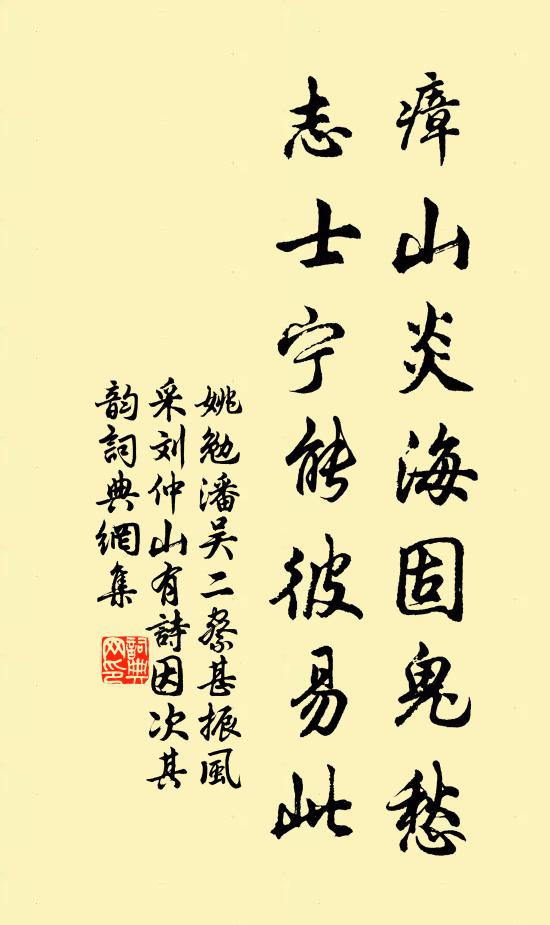 瘴山炎海固鬼愁
志士宁能彼易此
姚勉潘吴二察甚振風
采刘仲山有詩因次其
韵詞典網集
詞典
网印